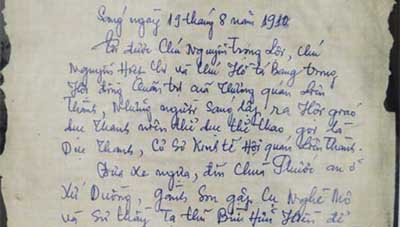 Song ngày 19 tháng 8 năm 1910
Tôi được Chú Nguyễn Trọng Lôi, Chú
Nguyễn Hiệt Chi và Chú Hồ Tá Bang trong
Hội đồng Quản trị của Thương quán Liên
Thành, Những người sáng lập ra Hội giáo
dục Thanh niên thể dục thể thao, gọi là
Dục Thanh, Cơ Sở Kinh tế Hội quán Liên Thành.
Đưa xe ngựa, đến Chùa Phước an ở
Xứ Dường, gánh Son gặp Cụ Nghè Mô
và Sư thầy Tạ thủ Bửu Hữu Hiền để